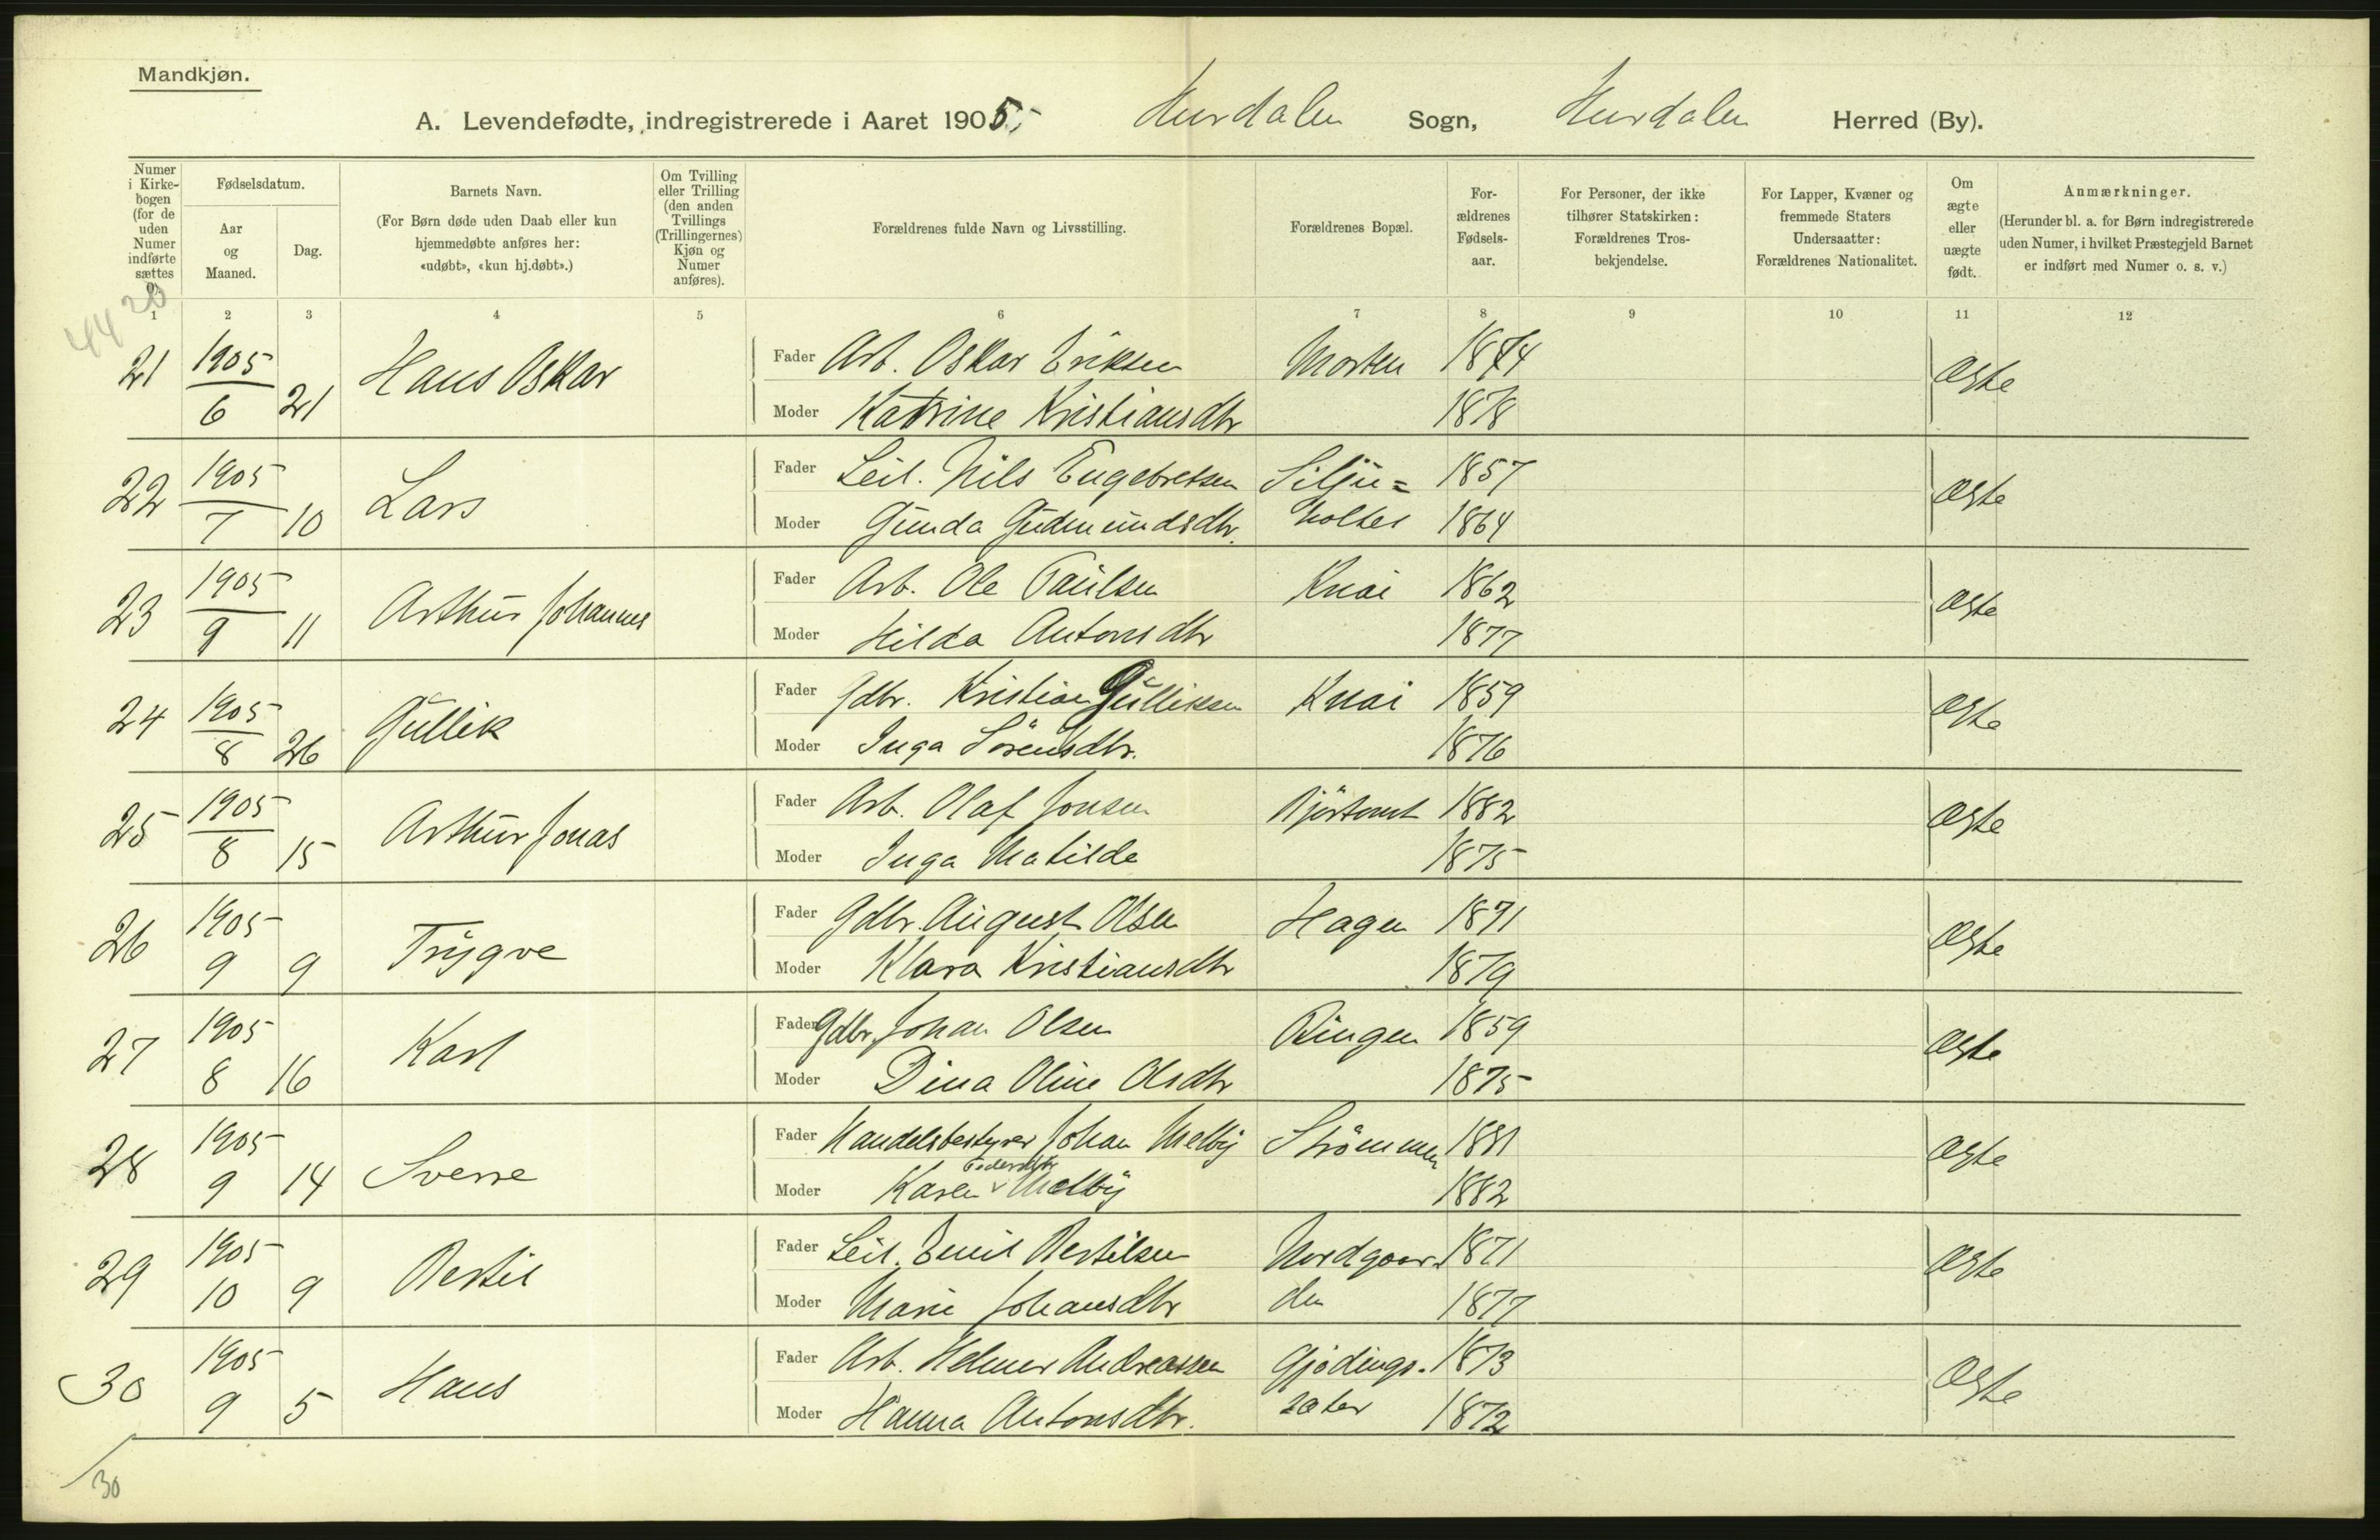 Mandkjøn.
A. Levendefødte, indregistrerede i Aaret 1905, Hurdalen Sogn, Hurdalen Herred (By).
Numer i Kirke-bogen (for de uden Numer indførte sættes 0).
Fødselsdatum.
Aar og Maaned.
Dag.
Barnets Navn.
(For Børn døde uden Daab eller kun hjemmedøbte anføres her: «udøbt», «kun hj.døbt».)
Om Tvilling eller Trilling (den anden Tvillings (Trillingernes) Kjøn og Numer anføres).
Forældrenes fulde Navn og Livsstilling.
Forældrenes Bopæl.
For-ældrenes Fødsels-aar.
For Personer, der ikke tilhører Statskirken: Forældrenes Tros-bekjendelse.
For Lapper, Kvæner og fremmede Staters Undersaatter: Forældrenes Nationalitet.
Om ægte eller uægte født.
Anmærkninger.
(Herunder bl. a. for Børn indregistrerede uden Numer, i hvilket Præstegjeld Barnet er indført med Numer o. s. v.)
44 20
1 2 3 4 5 6 7 8 9 10 11 12
21 1905 6 21 Hans Oskar Fader Arb. Oskar Eriksen Morten 1874 Ægte
Moder Katrine Kristiansdtr 1878
22 1905 7 10 Lars Fader Leil. Nils Engebretsen Silju= 1857 Ægte
Moder Gunda Gudmundsdtr. holtet 1864
23 1905 9 11 Arthur Johannes Fader Arb. Ole Paulsen Knai 1862 Ægte
Moder Hilda Antonsdtr 1877
24 1905 8 26 Gullik Fader Gdbr. Kristian Gulliksen Knai 1859 Ægte
Moder Inga Sörensdtr. 1876
25 1905 8 15 Arthur Jonas Fader Arb. Olaf Jonsen 1882 Ægte
Moder Inga Matilde 1875
26 1905 9 9 Trygve Fader Gdbr. August Olsen Hagen 1871 Ægte
Moder Klara Kristiansdtr 1879
27 1905 8 16 Karl Fader Gdbr. Johan Olsen Ringen 1859 Ægte
Moder Dina Oline Olsdtr 1875
28 1905 9 14 Sverre Fader Handelsbestyrer Johan Melby Strömmen 1881 Ægte
Moder Karen Pedersdtr Melby 1882
29 1905 10 9 Bertil Fader Leil. Emil Bertilsen Nordgaar- 1871 Ægte
Moder Marie Johansdtr den 1877
30 1905 9 5 Hans Fader Arb. Helmer Andreassen Gjödings- 1873 Ægte
Moder Hanna Antonsdtr. 1872
30